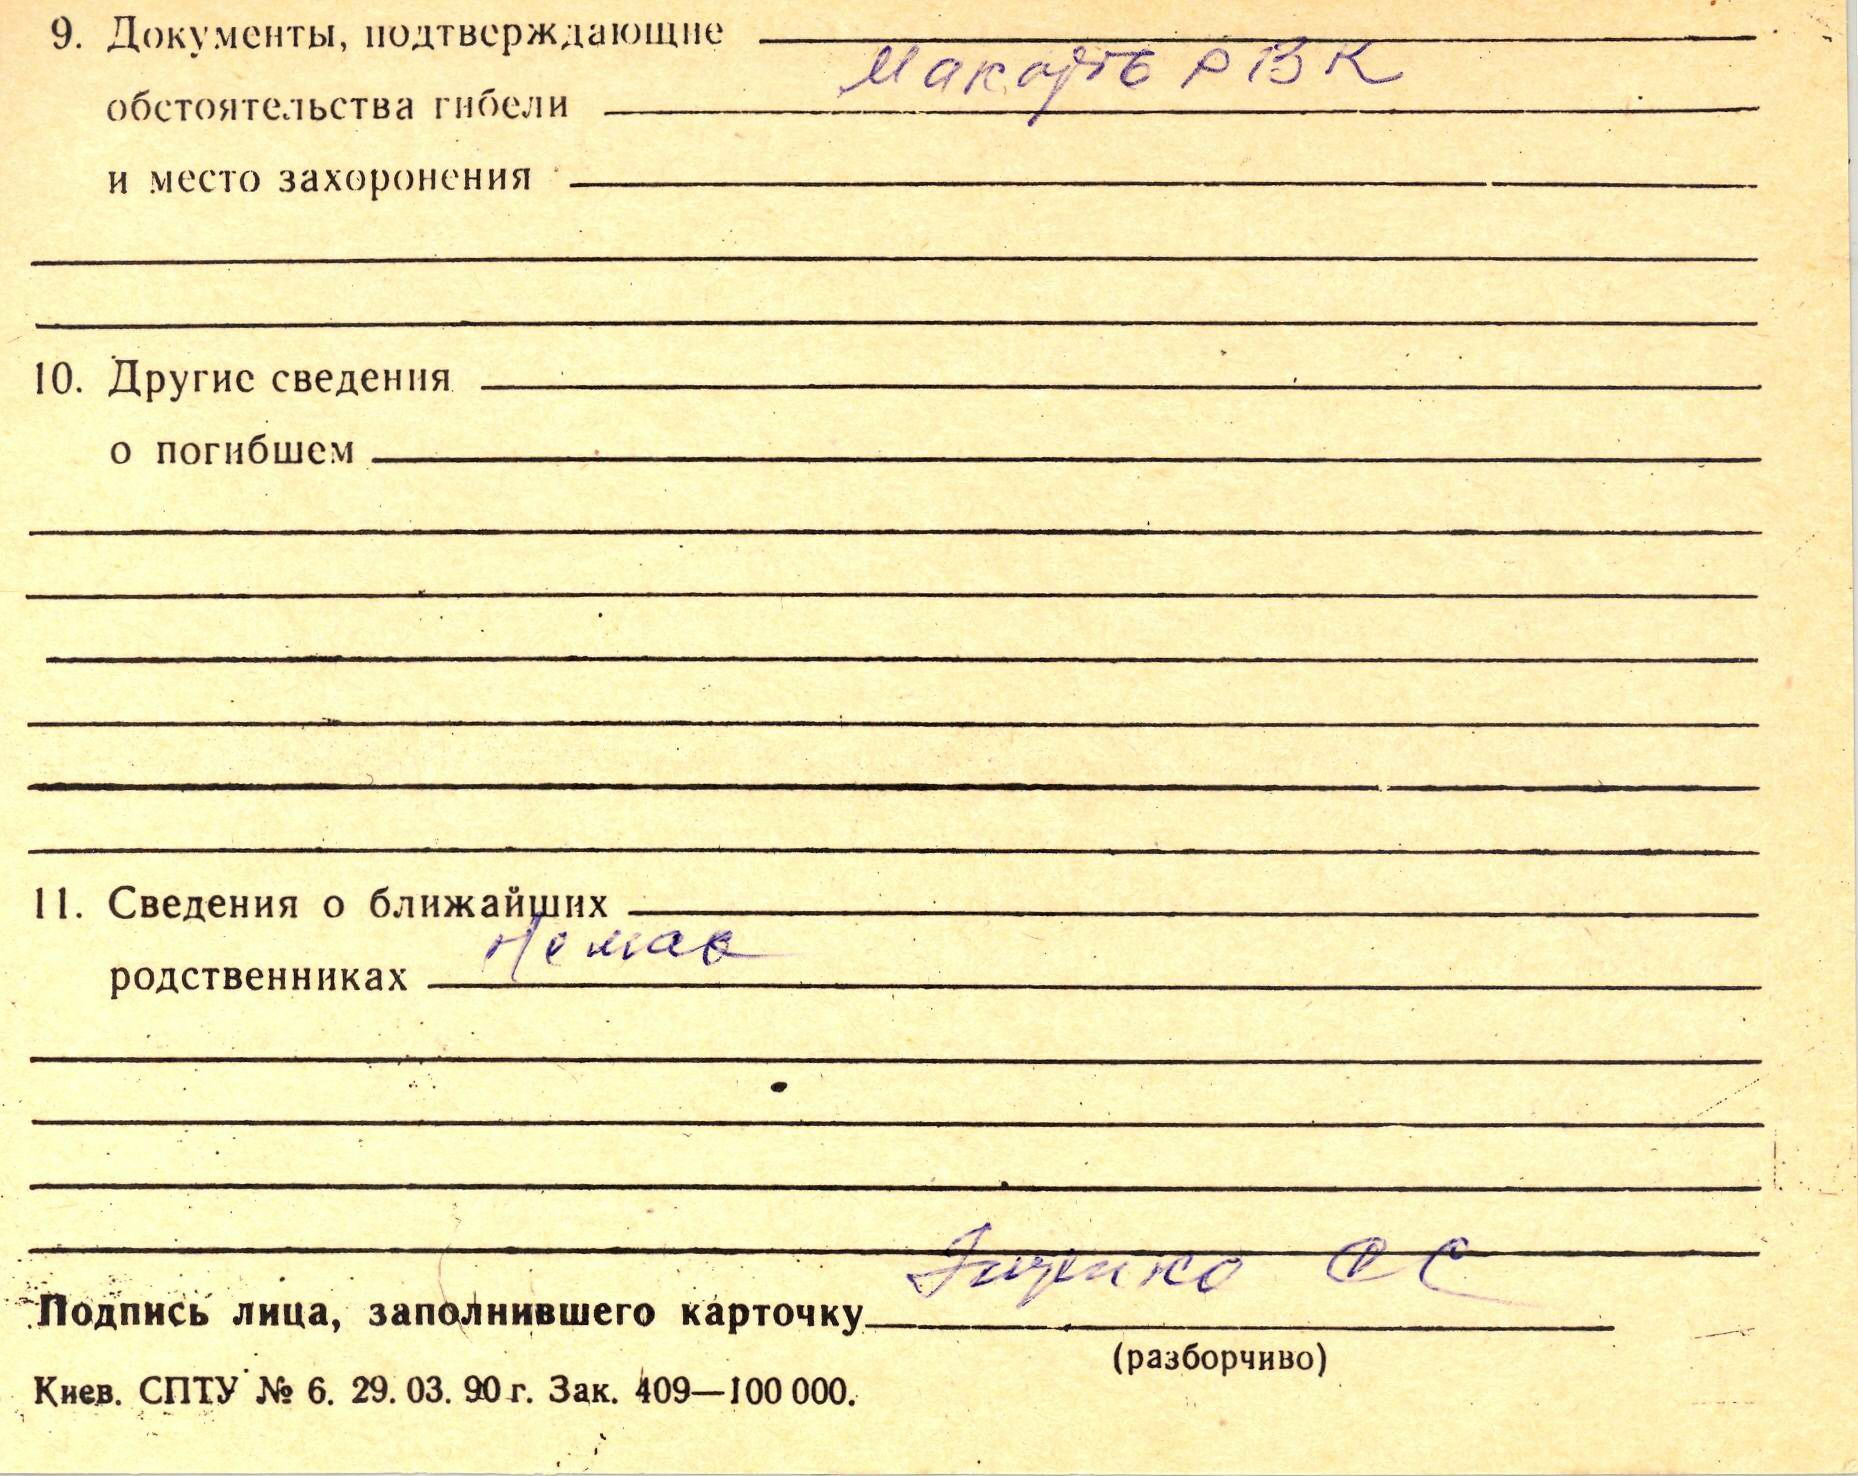 9. Документы, подтверждающие
обстоятельства гибели РВК
и место захоронения
10. Другие сведения
о погибшем
11. Сведения о ближайших
родственниках Немає
Подпись лица, заполнившего карточку
(разборчиво)
Киев. СПТУ № 6. 29. 03. 90 г. Зак. 409—100 000.